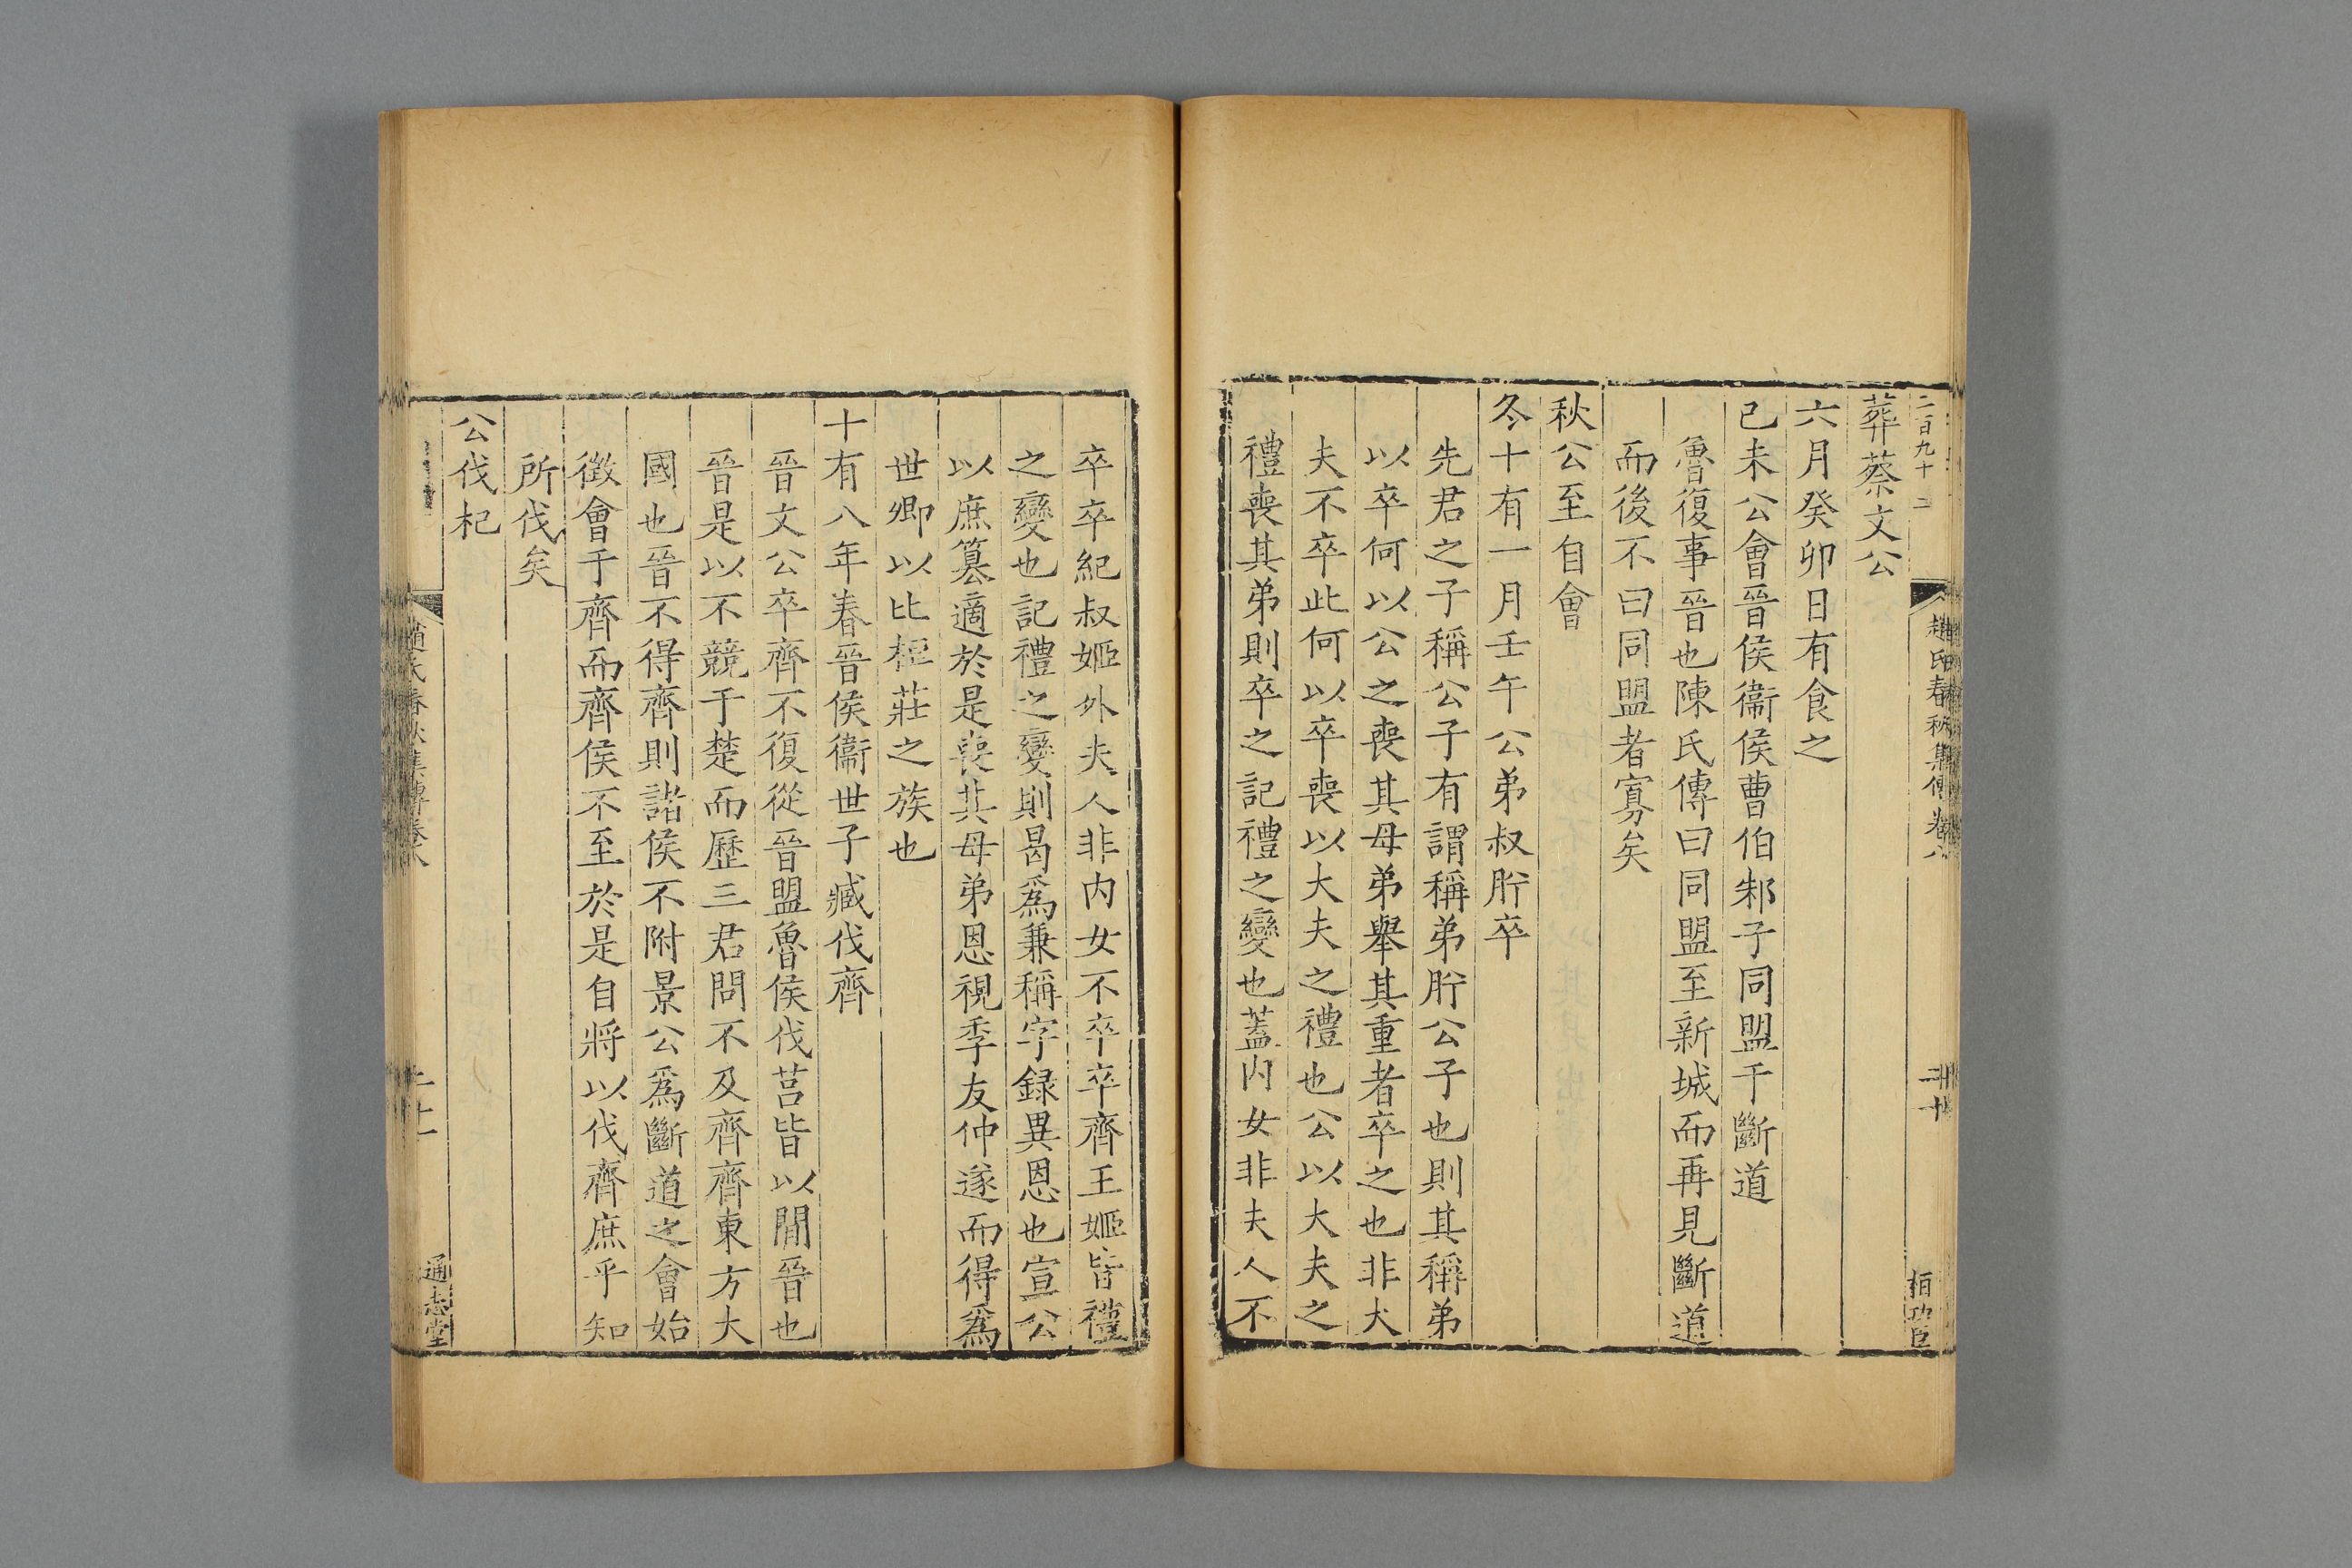 二百九十二
趙氏春秋集傳卷八
二十
葬蔡文公
六月癸卯日有食之
己未公會晉侯衞侯曹伯邾子同盟于斷道
魯復事晉也陳氏傳曰同盟至新城而再見斷道
而後不曰同盟者寡矣
秋公至自會
冬十有一月壬午公弟叔肸卒
先君之子稱公子有謂稱弟肸公子也則其稱弟
以卒何以公之喪其母弟舉其重者卒之也非大
夫不卒此何以卒喪以大夫之禮也公以大夫之
禮喪其弟則卒之記禮之變也蓋內女非夫人不
卒卒紀叔姬外夫人非內女不卒卒齊王姬皆禮
之變也記禮之變則曷爲兼稱字録異恩也宣公
以庶簒適於是喪其母弟恩視季友仲遂而得爲
世卿以比桓莊之族也
十有八年春晉侯衞世子臧伐齊
晉文公卒齊不復從晉盟魯侯伐莒皆以閒晉也
晉是以不競于楚而歷三君問不及齊齊東方大
國也晉不得齊則諸侯不附景公爲斷道之會始
徵會于齊而齊侯不至於是自將以伐齊庶乎知
所伐矣
公伐杞
趙氏春秋集傳卷八
二十一
通志堂